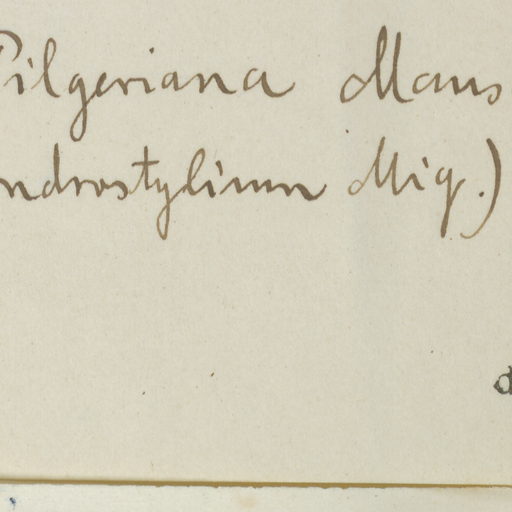 Pilgeriana Mans
ndrostylium Miq.)
d